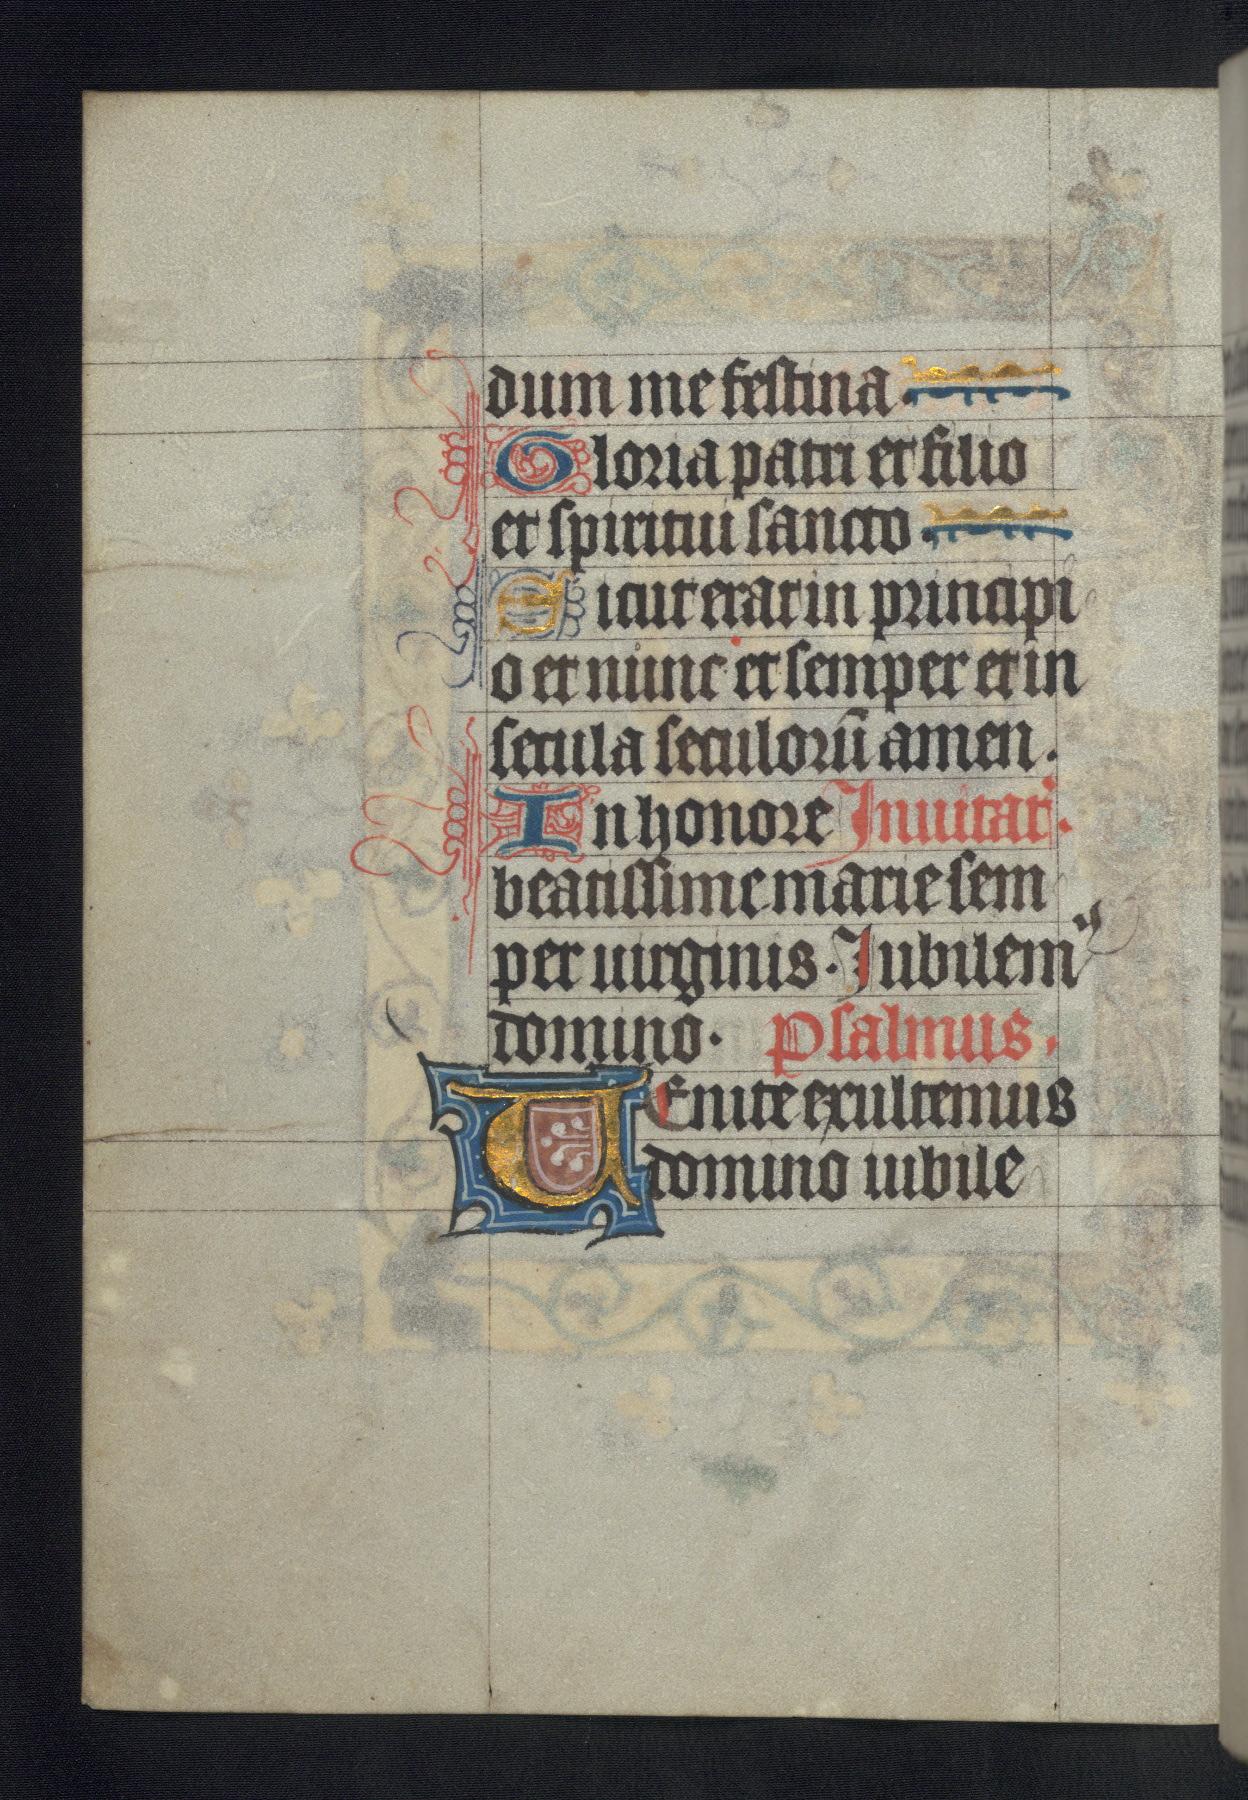 dum me festina.
Gloria patri et filio
et spiritui sancto.
Sicut erat in principi
o et nunc et semper et in
secula seculorū amen.
In honore Inuitat'.
beatissime marie sem
per uirginis. Iubilem⁹
domino. Psalmus.
UEnite exultemus
domino iubile